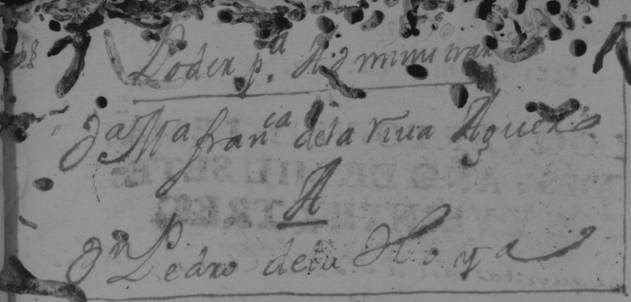 Poder p.a Administrar
D.a M.a Fran.ca de la Riva Aguero
A
D.n Pedro de la Hoya